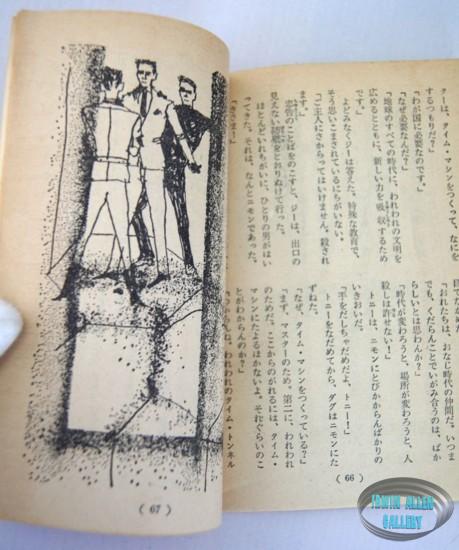 ターは、タイム・マシンをつくって、なにを
するつもりだ?」
「わが国に必要なのです。」
「なぜ必要なんだ?」
「地球のすべての時代に、われわれの文明を
広めるとともに、新しい力を吸収するため
です。」
よどみなくジーは答えた。特殊な教育で、
そう思いこまされているにちがいない。
「ご主人にさからってはいけません。殺され
ます。」
忠告のことばをのこすと、ジーは、出口の
見えない壁をとおりぬけて行った。
ほとんどいれちがいに、ひとりの男がはい
ってきた。それは、なんとニモンであった。
「きさま!」
「おれたちは、おなじ時代の仲間だ。いつま
でも、くだらんことでいがみ合うのは、ばか
らしいとは思わんか?」
「時代が変わろうと、場所が変わろうと、人
殺しは許せない!」
トニーは、ニモンにとびかからんばかりの
いきおいだ。
「手をだしちゃだめだよ、トニー!」
トニーをなだめてから、ダグはニモンにた
ずねた。
「なぜ、タイム・マシンをつくっている?」
「まず、マスターのため。第二に、われわれ
のためだ。ここからのがれるには、タイム・
マシンにたよるほかないよ。それぐらいのこ
とがわからんのか?」
われわれのタイム・トンネル
( 66 )
( 67 )
IRWIN ALLEN
GALLERY